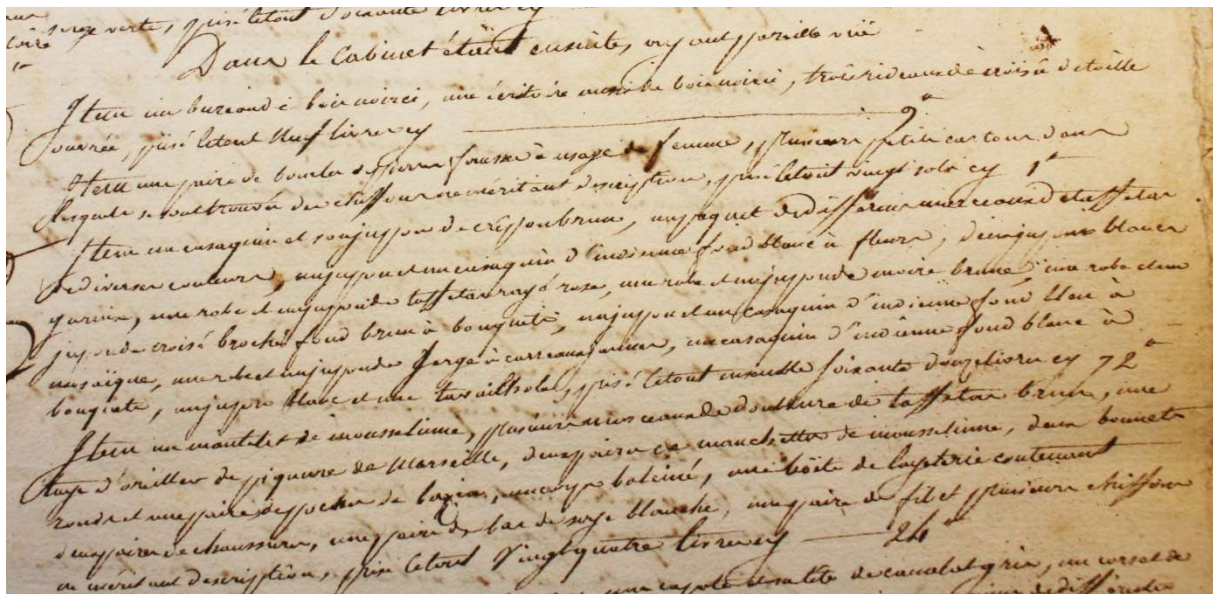 serge verte, prisé letout soixante livres cy
Dans le Cabinet étant ensuite, ayant pareille vüe
Item un bureau de bois noirci, une écritoire aussi de bois noirci, trois rideaux de croisée de toille
ouvrée, prisé letout Neuf livres cy 9tt
Item une paire de boucles de pierres fausses à usage de femme, plusieurs petits cartons dans
lesquels se sont trouvés des chiffons ne méritant description, prisé letout vingt sols cy 1tt
Item un casaquin et son juppon de crépon brun, un paquet de différens morceaux de taffetas
de diverses couleurs, un juppon et un casaquin d'indienne fond blanc à fleurs, deux jupons blancs
garnis, une robe et un juppon de taffetas rayé rose, une robe et un juppon de moire brune, une robe et un
jupon de croisé broché fond brun à bouquets, un juppon et un casaquin d'indienne fond bleu à
mosaïque, une robe et un juppon de serge à carreaux jaunes, un casaquin d'indienne fond blanc à
bouquets, un jupon blanc et une prisé letout ensemble soixante douze livres cy 72tt
Item un mantelet de mousseline, plusieurs morceaux de doublure de taffetas brun, une
taye d'oreiller de piquure de Marseille, deux paires de manchettes de mousseline, deux bonnets
ronds et une paire de poches de bazin, un corps baleiné, une boëte de layeterie contenant
deux paires de chaussures, une paire de bas de soye blanche, une paire de fil et plusieurs chiffons
ne méritant description, prisé letout Vingt quatre livres cy 24tt
une capote de camelot gris, un corset de
de différentes